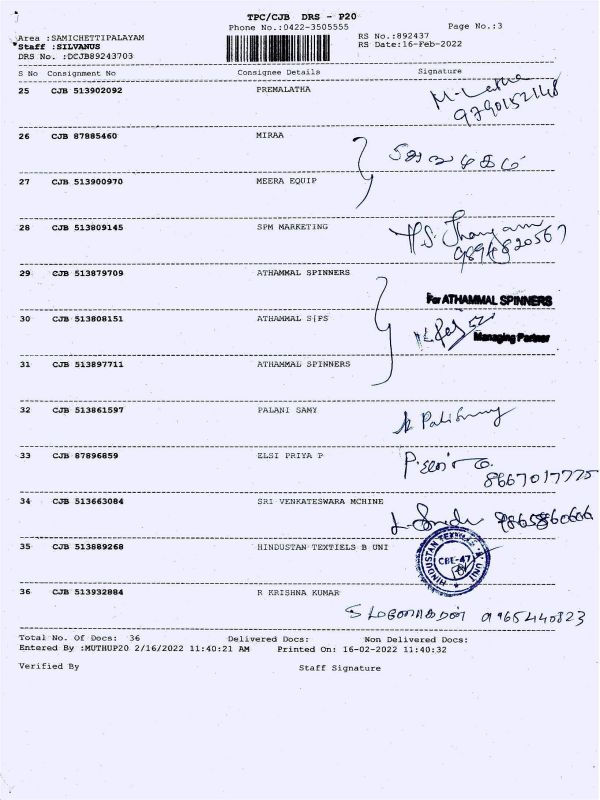 TPC/CJB DRS - P20
Phone No.:0422-3505555
Page No.:3
Area :SAMICHETTIPALAYAM
RS No.:892437
Staff :SILVANUS
RS Date:16-Feb-2022
DRS No. :DCJB89243703
S No Consignment No Consignee Details Signature
25 CJB 513902092 PREMALATHA M. Latha
9790152148
26 CJB 87885460 MIRAA
27 CJB 513900970 MEERA EQUIP
28 CJB 513809145 SPM MARKETING
9894820567
29 CJB 513879709 ATHAMMAL SPINNERS
For ATHAMMAL SPINNERS
30 CJB 513808151 ATHAMMAL S[PS
Managing Partner
31 CJB 513897711 ATHAMMAL SPINNERS
32 CJB 513861597 PALANI SAMY
33 CJB 87896859 ELSI PRIYA P
8667017775
34 CJB 513663084 SRI VENKATESWARA MCHINE
9865860666
35 CJB 513889268 HINDUSTAN TEXTIELS B UNI
HINDUSTAN TEXTILES 'B' UNIT
CBE-47
36 CJB 513932884 R KRISHNA KUMAR
9965440823
Total No. Of Docs: 36 Delivered Docs: Non Delivered Docs:
Entered By :MUTHUP20 2/16/2022 11:40:21 AM Printed On: 16-02-2022 11:40:32
Verified By Staff Signature